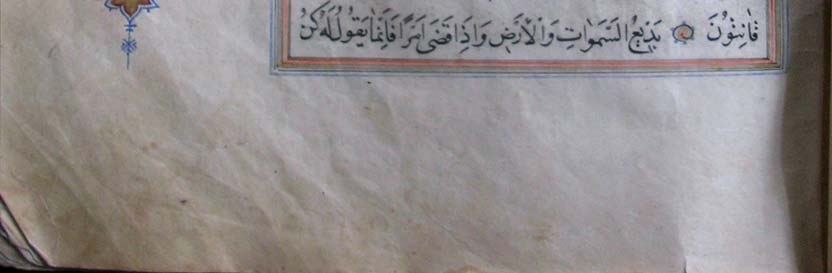 قَانِتُونَ ۝ بَدِيعُ السَّمٰوَاتِ وَالْاَرْضِ وَاِذَا قَضٰى اَمْرًا فَاِنَّمَا يَقُولُ لَهُ كُنْ